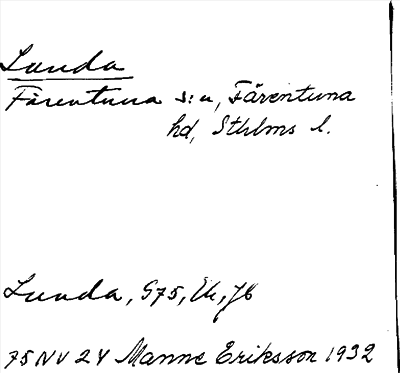 Lunda
Färentuna s:n, Färentuna
hd, Sthlms l.
Lunda, 975, Uk, Jb
75 NV 24 Manne Eriksson 1932